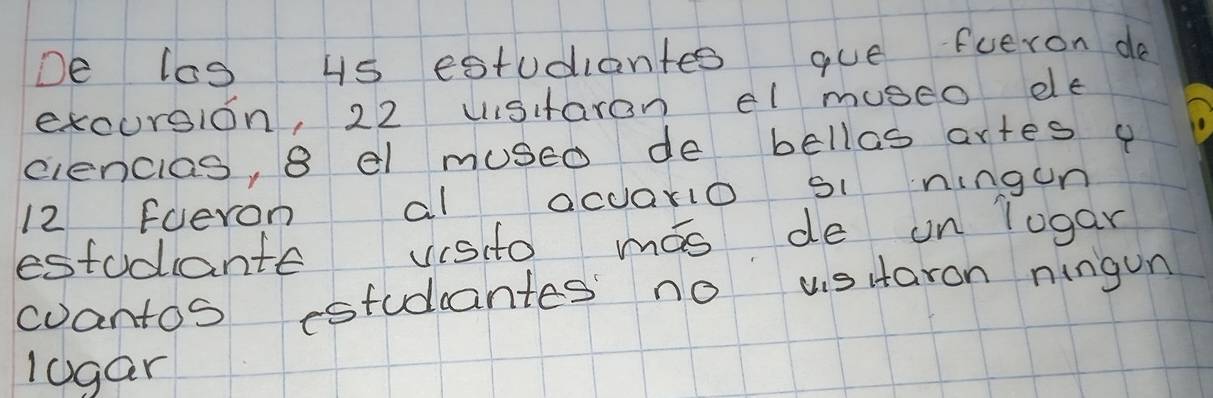 De los 45 estudiantes que fueron de
excursión, 22 visitaron el museo de
ciencias, 8 el museo de bellas artes y
12 Fueron al acuario si ningun
estudiante visito más de un lugar
cuantos estudiantes no visitaron ningun
lugar